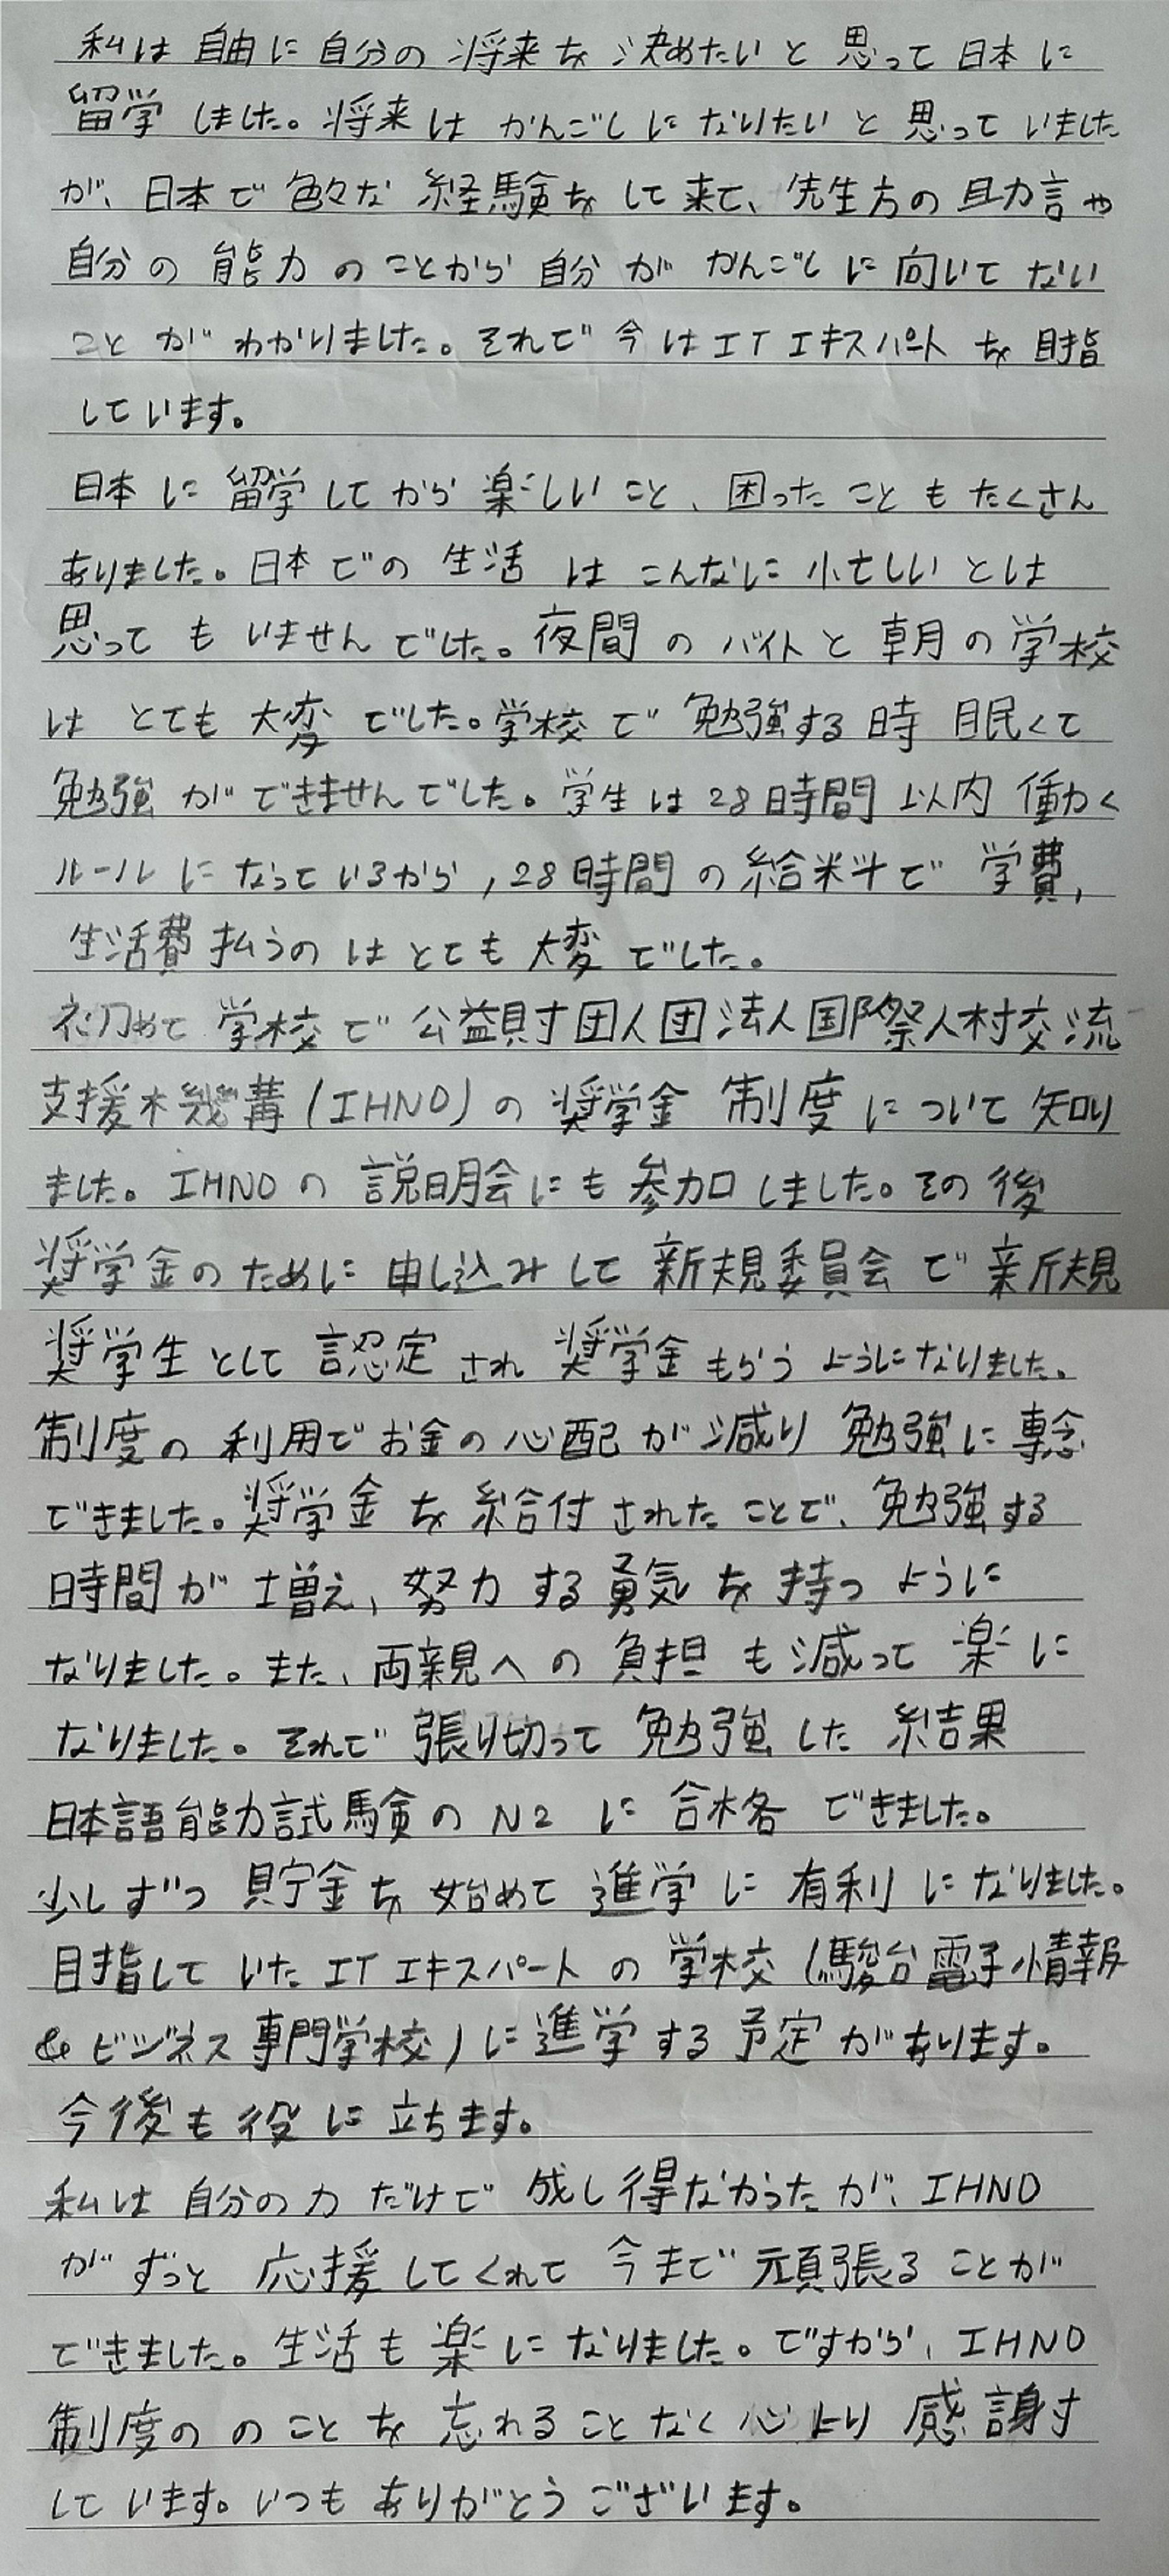 私は自由に自分の将来を決めたいと思って日本に
留学しました。将来はかんごしになりたいと思っていました
が、日本で色々な経験をして来て、先生方の助言や
自分の能力のことから自分がかんごしに向いてない
ことがわかりました。それで今はITエキスパートを目指
しています。
日本に留学してから楽しいこと、困ったこともたくさん
ありました。日本での生活はこんなに忙しいとは
思ってもいませんでした。夜間のバイトと朝の学校
はとても大変でした。学校で勉強する時眠くて
勉強ができませんでした。学生は28時間以内働く
ルールになっているから,28時間の給料で学費,
生活費払うのはとても大変でした。
初めて学校で公益財団人団法人国際人材交流
支援機構(IHNO)の奨学金制度について知り
ました。IHNOの説明会にも参加しました。その後
奨学金のために申し込みして新規委員会で新規
奨学生として認定され奨学金もらうようになりました。
制度の利用でお金の心配が減り勉強に専念
できました。奨学金を給付されたことで、勉強する
時間が増え、努力する勇気を持つように
なりました。また、両親への負担も減って楽に
なりました。それで張り切って勉強した結果
日本語能力試験のN2に合格できました。
少しずつ貯金を始めて進学に有利になりました。
目指していたITエキスパートの学校(駿台電子情報
&ビジネス専門学校)に進学する予定があります。
今後も役に立ちます。
私は自分の力だけで成し得なかったが、IHNO
がずっと応援してくれて今まで頑張ることが
できました。生活も楽になりました。ですから、IHNO
制度ののことを忘れることなく心より感謝
しています。いつもありがとうございます。